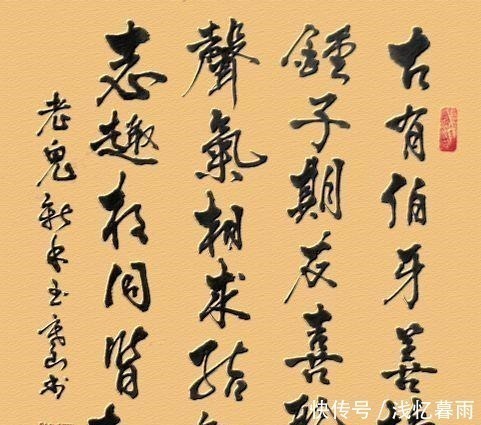 古有伯牙善
鍾子期友喜
聲氣相求結
志趣相同皆
老鬼
快传号/浅忆暮雨